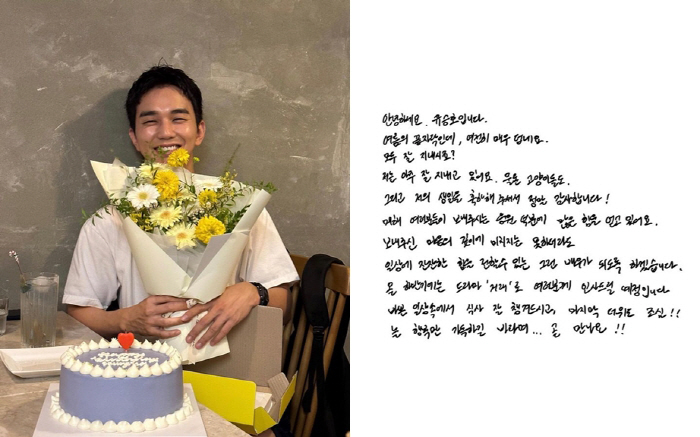 안녕하세요. 유승호입니다.
여름의 끝자락인데, 여전히 매우 덥네요.
모두 잘 지내시죠?
저는 아주 잘 지내고 있어요. 우온 고양이들도.
그리고 저의 생일을 축하해 주셔서 정말 감사합니다!
매해 여러분들이 보내주시는 응원 덕분에 많은 힘을 얻고 있어요.
보내주신 마음의 깊이에 미치지는 못하더라도
일상에 잔잔한 힘을 전할수 있는 그런 배우가 되도록 하겠습니다.
올 하반기에는 드라마 '거래'로 여러분께 인사드릴 예정입니다
바쁜 일상속에서 식사 잘 챙겨드시고, 마지막 더위도 조심!!
늘 행복만 가득하길 바라며... 곧 만나요!!